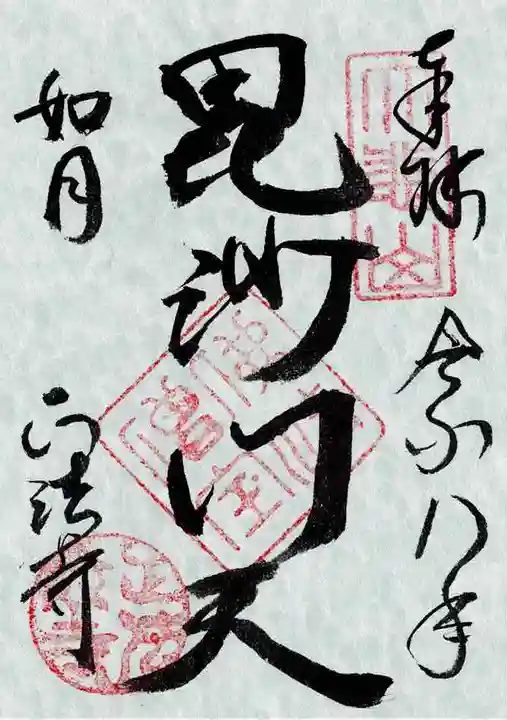 奉拝 令和八年
毘沙門天
如月 正法寺